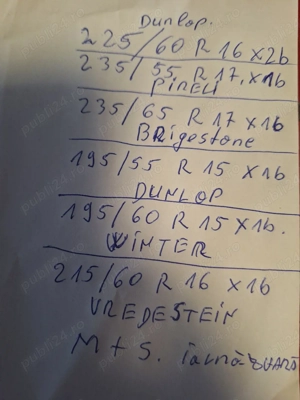 Dunlop.
225/60 R 16 x2b
235/55 R 17. x1b
PiRELi
235/65 R 17 x1b
BRigestone
195/55 R 15 x1b
DUNLOP
195/60 R 15 x1b.
WINTER
215/60 R 16 x1b
VREDESTEIN
M + S. iarnă